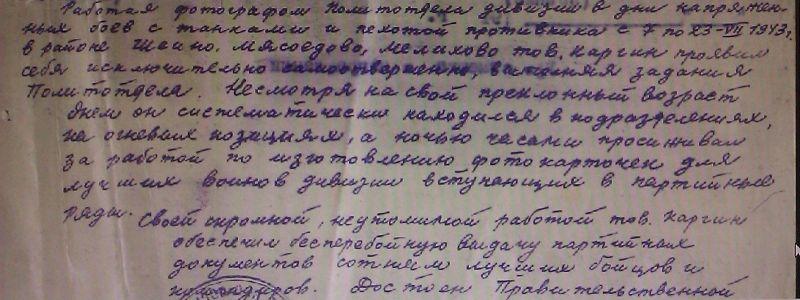 Работая фотографом Политотдела дивизии в дни напряжен-
ных боев с танками и пехотой противника с 7 по 23-VII 1943г.
в районе Шеино, Мясоедово, Мелихово тов. Каргин проявил
себя исключительно самоотверженно, выполняя задания
Политотдела. Несмотря на свой преклонный возраст
днем он систематически находился в подразделениях,
на огневых позициях, а ночью часами просиживал
за работой по изготовлению фотокарточек для
лучших воинов дивизии вступающих в партийные
ряды.
Своей скромной, неутомимой работой тов. Каргин
обеспечил бесперебойную выдачу партийных
документов сотням лучших бойцов и
командиров. Достоен Правительственной